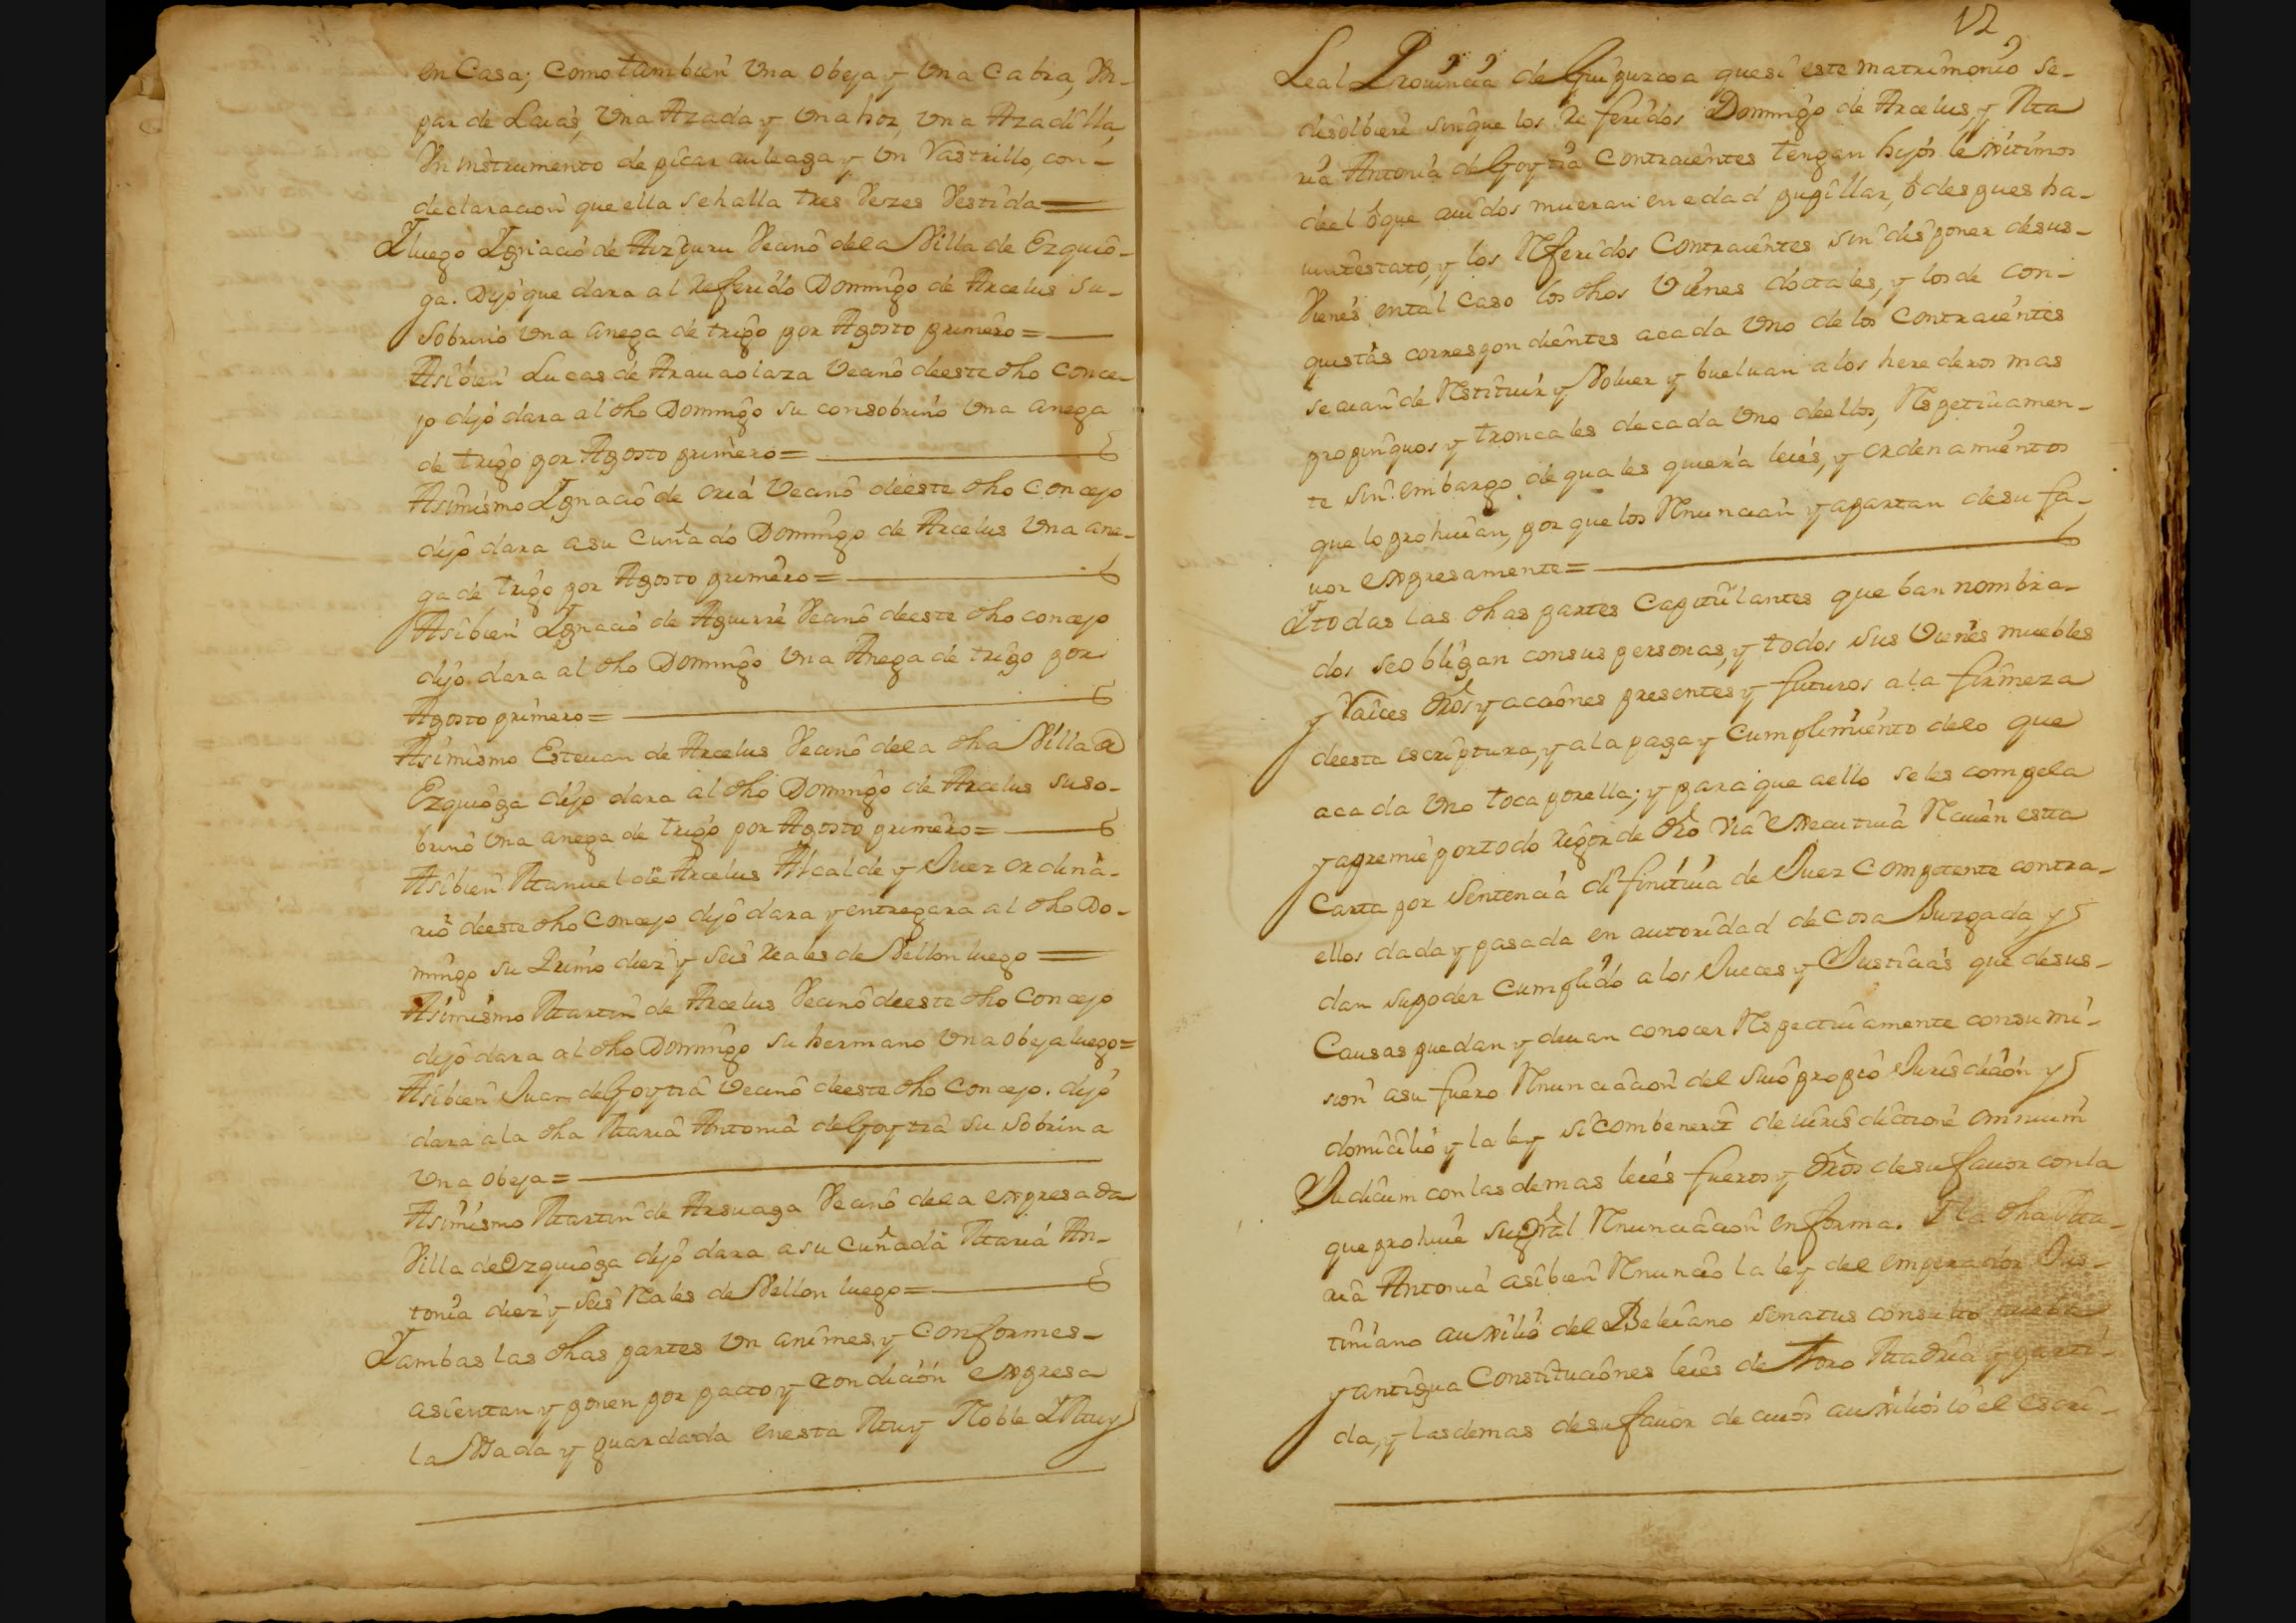 en Casa; Como tambien Vna obeja y Vna Cabra, Vn
par de Laias, Vna Azada y Vna hoz, Vna Azadilla,
Vn instrumento de picar auleaga y Vn Rastrillo, con-
declaracion que ella se halla tres Vezes Vestida=
Y luego Ygnacio de Aizpuru Vecino dela Villa de Ezquio-
ga. Dijo que dara al referido Domingo de Arcelus su-
sobrino Vna anega de trigo por Agosto primero=
Asibien Lucas de Araucolaza Vecino deeste dho Conce-
jo dijo dara al dho Domingo su consobrino Vna anega
de trigo por Agosto primero=
Asimismo Ygnacio de oria Vecino deeste dho Concejo
dijo dara asu Cuñado Domingo de Arcelus Vna ane-
ga de trigo por Agosto primero=
Asibien Ygnacio de Aguirre Vecino deeste dho concejo
dijo dara al dho Domingo Vna Anega de trigo por
Agosto primero=
Asimismo Esteuan de Arcelus Vecino dela dha Villa de
Ezquioga dijo dara al dho Domingo de Arcelus suso-
brino Vna anega de trigo por Agosto primero=
Asibien Manuel de Arcelus Alcalde y Juez ordina-
rio deeste dho Concejo dijo dara y entregara al dho Do-
mingo su Primo diez y seis reales de Vellon luego=
Asimismo Martin de Arcelus Vecino deeste dho Concejo
dijo dara al dho Domingo su hermano Vna obeja luego=
Asibien Juan de Goytia Vecino deeste dho Concejo. dijo
dara ala dha Maria Antonia de Goytia su sobrina
Vna obeja=
Asimismo Martin de Arsuaga Vecino dela expresada
Villa de Ezquioga dijo dara asu Cuñada Maria An-
tonia diez y seis reales de Vellon luego=
Y ambas las dhas partes Vn animes, y Conformes-
asientan y ponen por pacto y Condicion expresa
la Vsada y guardada enesta Muy Noble Y Muy
12
Leal Prouincia de Guipuzcoa quesi este matrimonio se-
disolbiere sinque los referidos Domingo de Arcelus, y Ma
ria Antonia de Goytia Contraientes tengan hijos lexitimos
deel o que auidos mueran en edad pupillar, o despues ha-
uintestato, y los referidos Contraientes sin disponer desus-
Vienes ental Caso los dhos Vienes dotales, y los de Con-
quistas correspondientes acada Vno de los Contraientes
se aian de restituir y Voluer y bueluan alos herederos mas
propinquos y troncales decada Vno deellos, respetiuamen-
te sin embargo de quales quiera leies, y ordenamientos
que lo prohiuian, por que los renuncian y apartan desu fa-
uor expresamente=
Y todas las dhas partes Capitulantes que ban nombra-
dos se obligan consus personas, y todos sus Vienes muebles
y Raices dros y acciones presentes y futuros ala firmeza
deesta escriptura, y ala paga y Cumplimiento delo que
acada Vno toca porella; y para que aello seles compela
y apremie por todo rigor de dro Via executiua Reciuen esta
Carta por Sentencia difinitiua de Juez Competente contra-
ellos dada y pasada en autoridad de Cosa Juzgada, y
dan supoder Cumplido alos Jueces y Justicias que desus-
Causas puedan y deuan conocer respectiuamente consumi-
sion asu fuero renunciacion del suio propio Jurisdicion y
domicilio y la ley sicombenerit de iurisdictione omnium
Judicum con las demas leies fueros y dros desu fauor con la
que prohiue su gral renunciacion en forma. Y la dha Ma-
ria Antonia asibien renuncio la ley del emperador Jus-
tiniano auxilio del Beleiano senatus consulto nueba
y antigua Constituciones leies de toro Madrid y parti-
da, y las demas desu fauor de cuios auxilios io el escri-